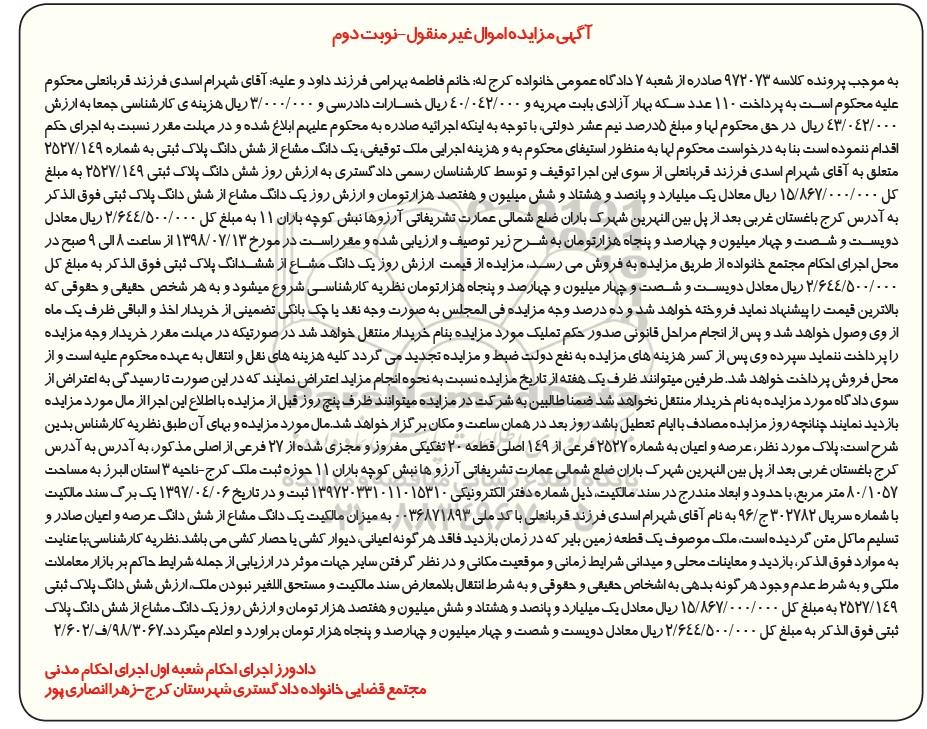 آگهی مزایده اموال غیر منقول-نوبت دوم
به موجب پرونده کلاسه ۹۷۲۰۷۳ صادره از شعبه ۷ دادگاه عمومی خانواده کرج له: خانم فاطمه بهرامی فرزند داود و علیه: آقای شهرام اسدی فرزند قربانعلی محکوم
علیه محکوم است به پرداخت ۱۱۰ عدد سکه بهار آزادی بابت مهریه و ۴۰/۰۴۲/۰۰۰ ریال خسارات دادرسی و ۳/۰۰۰/۰۰۰ ریال هزینه ی کارشناسی جمعا به ارزش
۴۳/۰۴۲/۰۰۰ ریال در حق محکوم لها و مبلغ ۵درصد نیم عشر دولتی، با توجه به اینکه اجرائیه صادره به محکوم علیهم ابلاغ شده و در مهلت مقرر نسبت به اجرای حکم
اقدام ننموده است بنا به درخواست محکوم لها به منظور استیفای محکوم به و هزینه اجرایی ملک توقیفی، یک دانگ مشاع از شش دانگ پلاک ثبتی به شماره ۲۵۲۷/۱۴۹
متعلق به آقای شهرام اسدی فرزند قربانعلی از سوی این اجرا توقیف و توسط کارشناسان رسمی دادگستری به ارزش روز شش دانگ پلاک ثبتی ۲۵۲۷/۱۴۹ به مبلغ
کل ۱۵/۸۶۷/۰۰۰/۰۰۰ ریال معادل یک میلیارد و پانصد و هشتاد و شش میلیون و هفتصد هزارتومان و ارزش روز یک دانگ مشاع از شش دانگ پلاک ثبتی فوق الذکر
به آدرس کرج باغستان غربی بعد از پل بین النهرین شهرک باران ضلع شمالی عمارت تشریفاتی آرزوها نبش کوچه باران ۱۱ به مبلغ کل ۲/۶۴۴/۵۰۰/۰۰۰ ریال معادل
دویست و شصت و چهار میلیون و چهارصد و پنجاه هزارتومان به شرح زیر توصیف و ارزیابی شده و مقرراست در مورخ ۱۳۹۸/۰۷/۱۳ از ساعت ۸ الی ۹ صبح در
محل اجرای احکام مجتمع خانواده از طریق مزایده به فروش می رسد، مزایده از قیمت ارزش روز یک دانگ مشاع از ششدانگ پلاک ثبتی فوق الذکر به مبلغ کل
۲/۶۴۴/۵۰۰/۰۰۰ ریال معادل دویست و شصت و چهار میلیون و چهارصد و پنجاه هزارتومان نظریه کارشناسی شروع میشود و به هر شخص حقیقی و حقوقی که
بالاترین قیمت را پیشنهاد نماید فروخته خواهد شد و ده درصد وجه مزایده فی المجلس به صورت وجه نقد یا چک بانکی تضمینی از خریدار اخذ و الباقی ظرف یک ماه
از وی وصول خواهد شد و پس از انجام مراحل قانونی صدور حکم تملیک مورد مزایده بنام خریدار منتقل خواهد شد در صورتیکه در مهلت مقرر خریدار وجه مزایده
را پرداخت ننماید سپرده وی پس از کسر هزینه های مزایده به نفع دولت ضبط و مزایده تجدید می گردد کلیه هزینه های نقل و انتقال به عهده محکوم علیه است و از
محل فروش پرداخت خواهد شد. طرفین میتوانند ظرف یک هفته از تاریخ مزایده نسبت به نحوه انجام مزاید اعتراض نمایند که در این صورت تا رسیدگی به اعتراض از
سوی دادگاه مورد مزایده به نام خریدار منتقل نخواهد شد ضمنا طالبین به شرکت در مزایده میتوانند ظرف پنج روز قبل از مزایده با اطلاع این اجرا از مال مورد مزایده
بازدید نمایند چنانچه روز مزایده مصادف با ایام تعطیل باشد روز بعد در همان ساعت و مکان برگزار خواهد شد.مال مورد مزایده و بهای آن طبق نظریه کارشناس بدین
شرح است: پلاک مورد نظر، عرصه و اعیان به شماره ۲۵۲۷ فرعی از ۱۴۹ اصلی قطعه ۲۰ تفکیکی مفروز و مجزی شده از ۲۷ فرعی از اصلی مذکور، به آدرس به آدرس
کرج باغستان غربی بعد از پل بین النهرین شهرک باران ضلع شمالی عمارت تشریفاتی آرزو ها نبش کوچه باران ۱۱ حوزه ثبت ملک کرج-ناحیه ۳ استان البرز به مساحت
۸۰/۱۰۵۷ متر مربع، با حدود و ابعاد مندرج در سند مالکیت، ذیل شماره دفتر الکترونیکی ۱۳۹۷۲۰۳۳۱۰۱۱۰۱۵۳۱۰ ثبت و در تاریخ ۱۳۹۷/۰۴/۰۶ یک برگ سند مالکیت
با شماره سریال ۳۰۲۷۸۲ ج/۹۶ به نام آقای شهرام اسدی فرزند قربانعلی با کد ملی ۰۰۳۶۸۷۱۸۹۳ به میزان مالکیت یک دانگ مشاع از شش دانگ عرصه و اعیان صادر و
تسلیم ماکل متن گردیده است، ملک موصوف یک قطعه زمین بایر که در زمان بازدید فاقد هرگونه اعیانی، دیوار کشی یا حصار کشی می باشد.نظریه کارشناسی:با عنایت
به موارد فوق الذکر، بازدید و معاینات محلی و میدانی شرایط زمانی و موقعیت مکانی و در نظر گرفتن سایر جهات موثر در ارزیابی از جمله شرایط حاکم بر بازار معاملات
ملکی و به شرط عدم وجود هرگونه بدهی به اشخاص حقیقی و حقوقی و به شرط انتقال بلامعارض سند مالکیت و مستحق اللغیر نبودن ملک، ارزش شش دانگ پلاک ثبتی
۲۵۲۷/۱۴۹ به مبلغ کل ۱۵/۸۶۷/۰۰۰/۰۰۰ ریال معادل یک میلیارد و پانصد و هشتاد و شش میلیون و هفتصد هزار تومان و ارزش روز یک دانگ مشاع از شش دانگ پلاک
ثبتی فوق الذکر به مبلغ کل ۲/۶۴۴/۵۰۰/۰۰۰ ریال معادل دویست و شصت و چهار میلیون و چهارصد و پنجاه هزار تومان براورد و اعلام میگردد.۹۸/۳۰۶۷/ف/۲/۶۰۲
دادورز اجرای احکام شعبه اول اجرای احکام مدنی
مجتمع قضایی خانواده دادگستری شهرستان کرج-زهرا انصاری پور